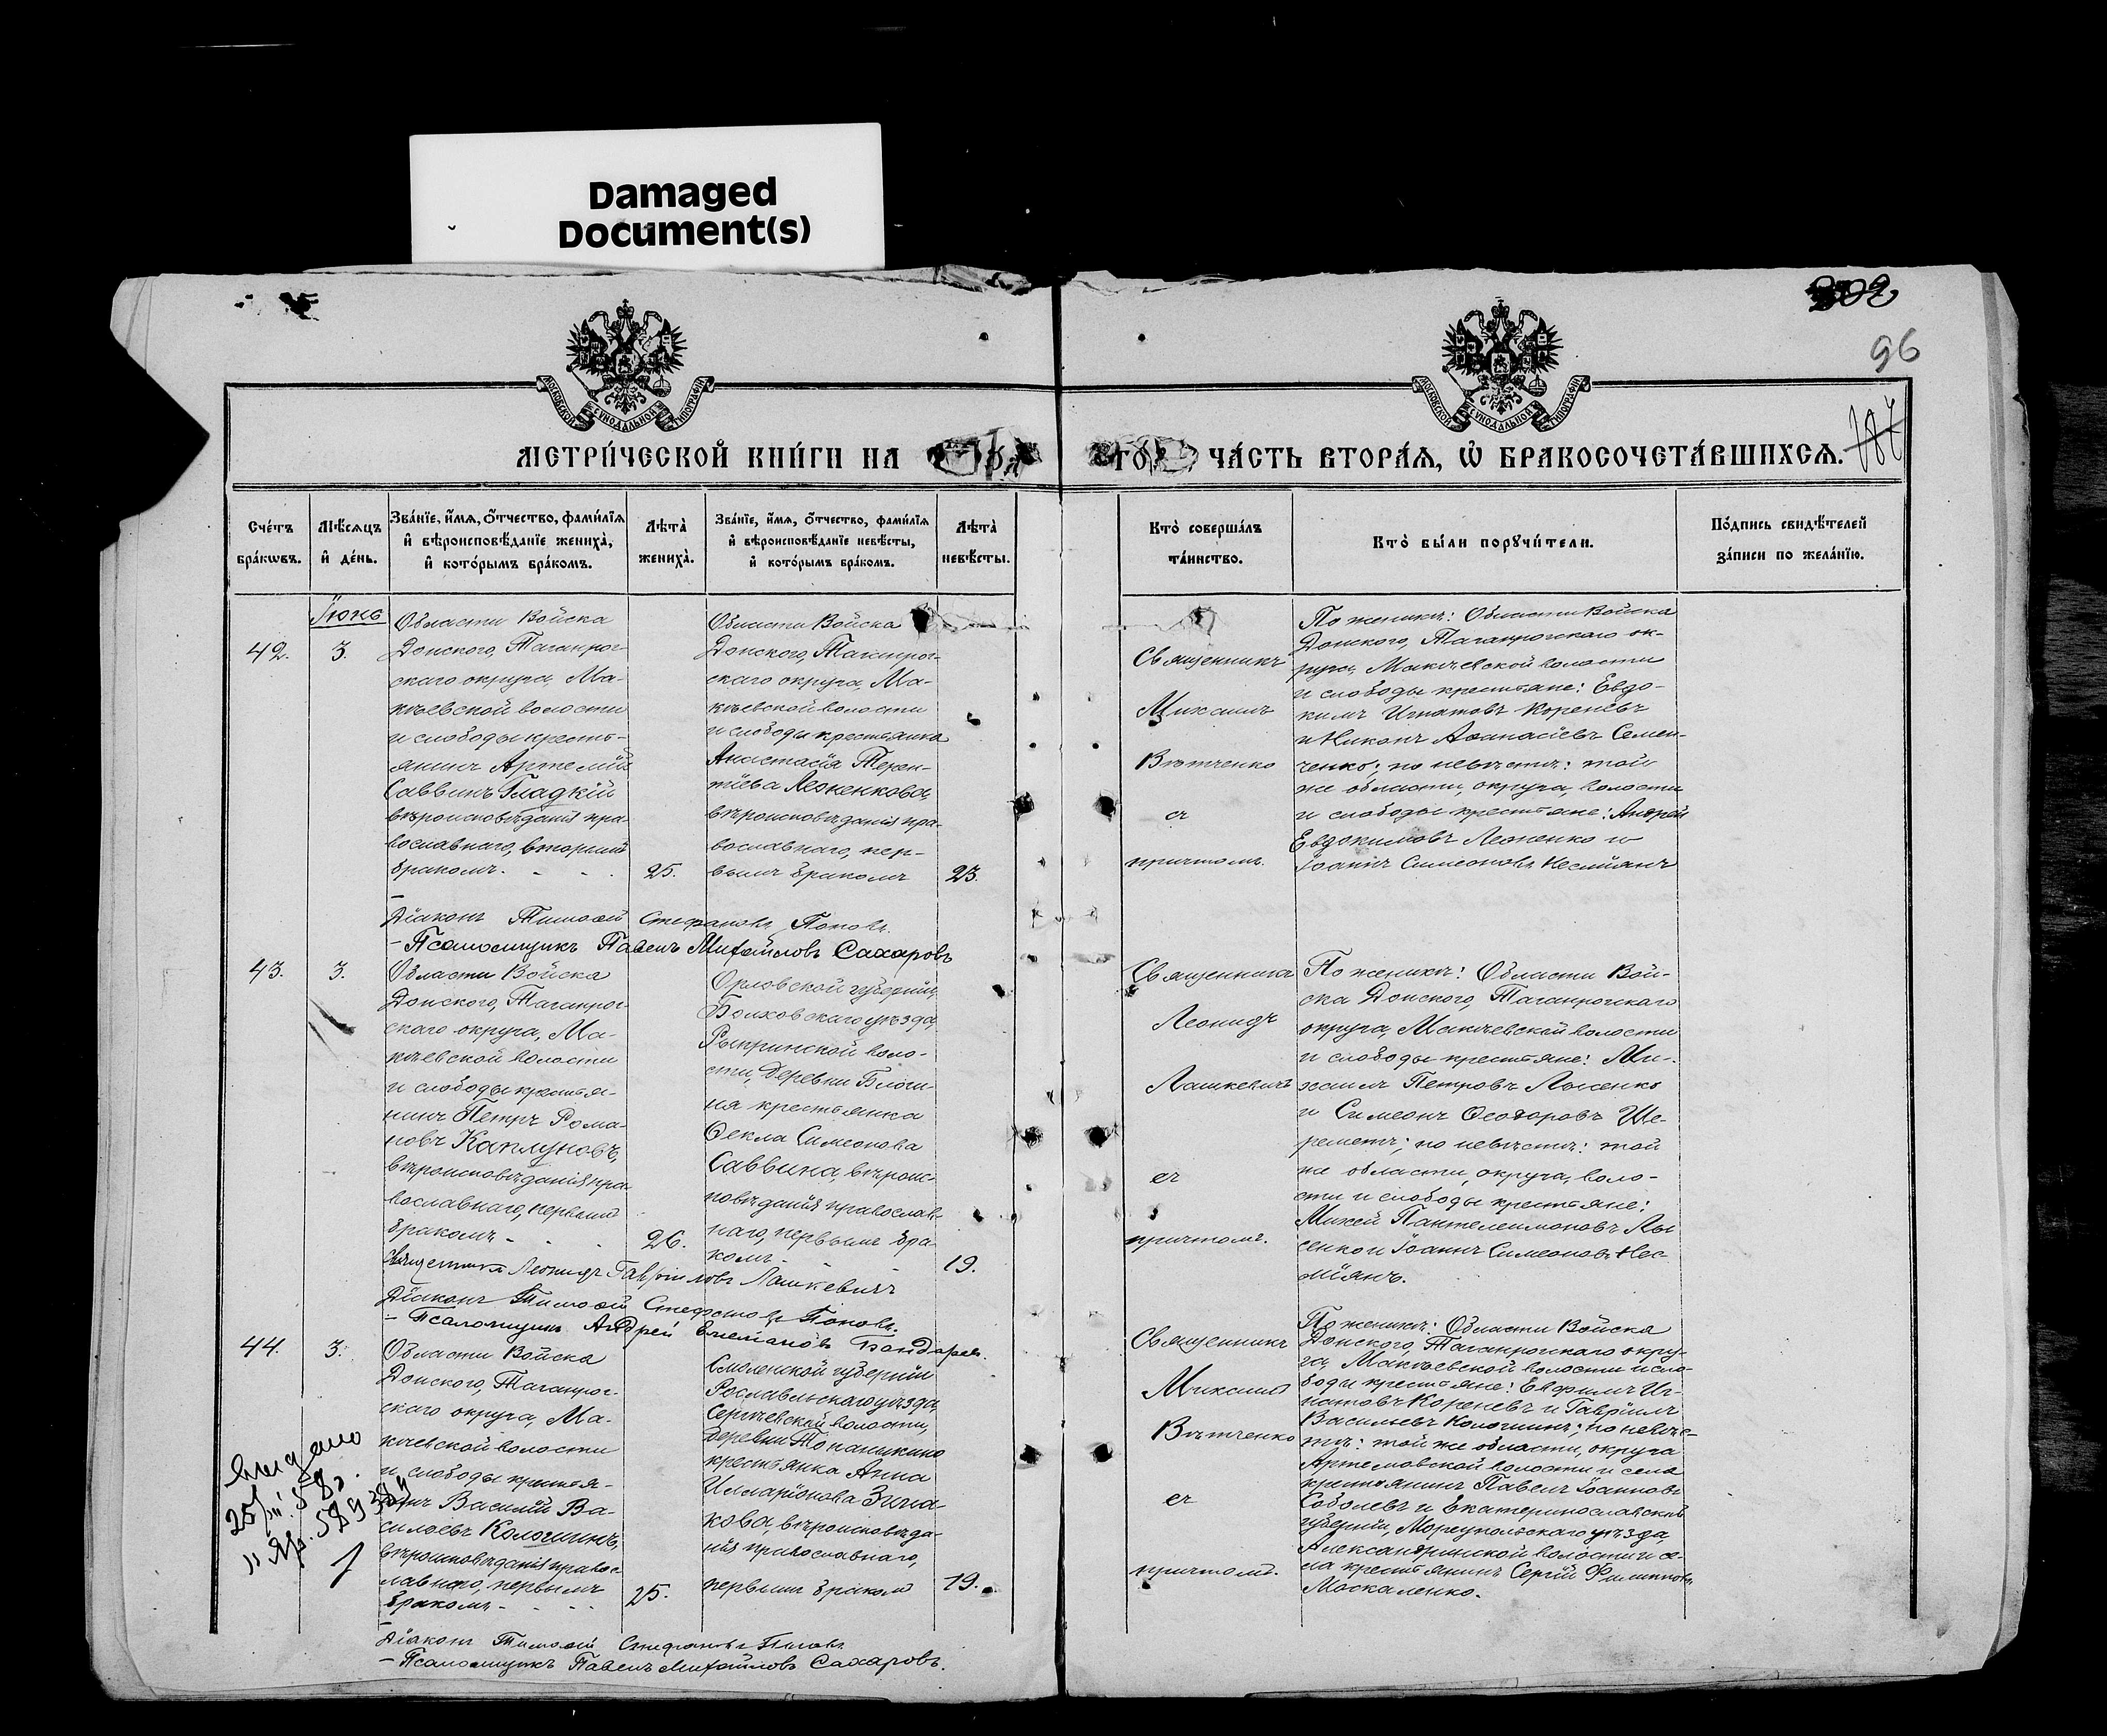 Damaged
Document(s)
302
96
МОСКОВСКОЙ СѴНОДАЛЬНОЙ ТИПОГРАФІИ
МОСКОВСКОЙ СѴНОДАЛЬНОЙ ТИПОГРАФІИ
МЕТРИ́ЧЕСКОЙ КНИ́ГИ НА
ЧА́СТЬ ВТОРА́Я, Ѡ БРАКОСОЧЕТА́ВШИХСЯ.
Сче́тъ бра́кωвъ.
Мѣ́сяцъ и де́нь.
Зва́нїе, и́мя, о́тчество, фами́лїя и вѣроисповѣ́данїе жениха̀, и кото́рымъ бра́комъ.
Лѣта̀ жениха̀.
Зва́нїе, и́мя, о́тчество, фами́лїя и вѣроисповѣ́данїе невѣ́сты, и кото́рымъ бра́комъ.
Лѣта̀ невѣ́сты.
Кто̀ соверша́лъ та́инство.
Кто̀ бы́ли порꙋчи́тели.
По́дпись свидѣ́телей за́писи по жела́нїю.
Іюнь
42.
3.
Области Войска
Донского, Таганрог-
скаго округа, Ма-
кѣевской волости
и слободы кресть-
янинъ Артемій
Саввинъ Гладкій
вѣроисповѣданія пра-
вославнаго, вторымъ
бракомъ.
25.
Области Войска
Донского, Таганрог-
скаго округа, Ма-
кѣевской волости
и слободы крестьянка
Анастасія Терен-
тіева Леоненкова,
вѣроисповѣданія пра-
вославнаго, пер-
вымъ бракомъ
23.
Священникъ
Михаилъ
Вѣтченко
съ
причтомъ.
По женихѣ: Области Войска
Донского, Таганрогскаго ок-
руга, Макѣевской волости
и слободы крестьяне: Евдо-
кимъ Игнатовъ Кореневъ
и Никонъ Аѳанасіевъ Семен-
ченко; по невѣстѣ: той
же области, округа, волости
и слободы крестьяне: Андрей
Евдокимовъ Леоненко и
Іоаннъ Симеоновъ Несміянъ
Діаконъ Тимоѳей Стефановъ Поповъ.
Псаломщикъ Павелъ Михайловъ Сахаровъ
43.
3.
Области Войска
Донского, Таганрог-
скаго округа, Ма-
кѣевской волости
и слободы крестья-
нинъ Петръ Рома-
новъ Каплуновъ,
вѣроисповѣданія пра-
вославнаго, первымъ
бракомъ
26.
Орловской губерніи,
Болховскаго уѣзда,
воло-
сти, деревни
крестьянка
Ѳекла Симеонова
Саввина, вѣроис-
повѣданія православ-
наго, первымъ бра-
комъ
19.
Священникъ
Леонидъ
Лашкевичъ
съ
причтомъ.
По женихѣ: Области Вой-
ска Донского, Таганрогскаго
округа, Макѣевской волости
и слободы крестьяне: Ми-
хаилъ Петровъ Лысенко
и Симеонъ Ѳеодоровъ Ше-
реметъ; по невѣстѣ: той
же области, округа, воло-
сти и слободы крестьяне:
Михей Пантелеимоновъ Лы-
сенко и Іоаннъ Симеоновъ Нес-
міянъ.
Священникъ Леонидъ Гавріиловъ Лашкевичъ
Діаконъ Тимоѳей Стефановъ Поповъ.
Псаломщикъ Андрей Бондаревъ.
44.
3.
Области Войска
Донского, Таганрог-
скаго округа, Ма-
кѣевской волости
и слободы крестья-
нинъ Василій Ва-
сильевъ Колошинъ,
вѣроисповѣданія правос-
лавнаго, первымъ
бракомъ
25.
Смоленской губерніи
Рославльскаго уѣзда,
волости,
деревни
крестьянка Анна
Илларіонова
вѣроисповѣда-
нія православнаго,
первымъ бракомъ
19.
Священникъ
Михаилъ
Вѣтченко
съ
причтомъ.
По женихѣ: Области Войска
Донского, Таганрогскаго окру-
га, Макѣевской волости и сло-
боды крестьяне: Евфимъ Иг-
натовъ Кореневъ и Гавріилъ
Васильевъ Колошинъ; по невѣс-
тѣ: той же области, округа
Артемовской волости и села
крестьянинъ Павелъ Іоанновъ
Соболевъ и Екатеринославской
губерніи, Маріупольскаго уѣзда,
Александринской волости и се-
ла крестьянинъ Сергій Филипповъ
Москаленко.
Діаконъ Тимоѳей Стефановъ Поповъ
Псаломщикъ Павелъ Михайловъ Сахаровъ.